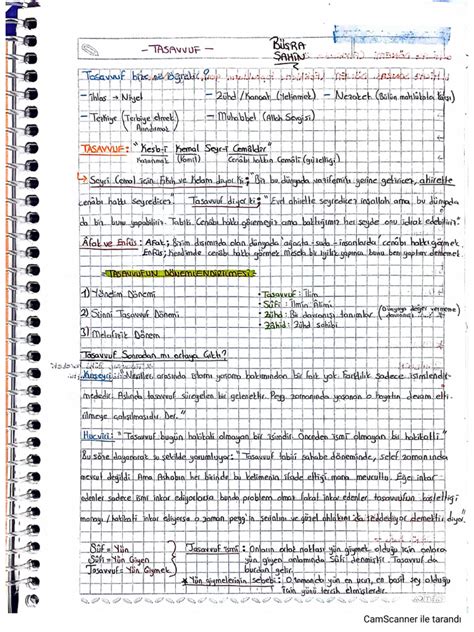 - TASAVVUF -
BÜSRA
SAHİN
Tasavvuf bize ne öğretir?
- İhlas → Niyet
- Zühd / Kanaat (Yetinmek)
- Nezaket (Bütün mahlûkata karşı)
- Terbiye (Terbiye etmek) Arındırmak
- Muhabbet (Allah Sevgisi)
TASAVVUF: "Kesb-i Kemal Seyr-i Cemaldir"
Kazanmak (Kamil) Cenâbı hakkın Cemâli (güzelliği)
Seyri Cemal için Fıkıh ve Kelam diyor ki; Biz bu dünyada vazifemizi yerine getiricez, ahirette
cenâbı hakkı seyredicez. Tasavvuf diyor ki; "Evet ahirette seyredicez inşallah ama bu dünyada
da biz bunu yapabiliriz. Tabiki Cenâbı hakkı göremeyiz ama baktığımız her şeyde onu idrak edebiliriz."
Âfak ve Enfüs: Afak; Bizim dışımızda olan dünyada ağaçta suda insanlarda cenâbı hakkı görmek
Enfüs; kendimizde cenâbı hakkı görmek
TASAVVUFUN DÖNEMLENDİRİLMESİ
1) Yönetim Dönemi
2) Sünni Tasavvuf Dönemi
3) Metafizik Dönem
- Tasavvuf: İlim
- Sûfi: İlmin Âlimi
- Zühd: Bu dünyayı tanımlar (Dünyaya değer vermeme davranışı)
- Zâhid: Zühd sahibi
Tasavvuf Sonradan mı ortaya Çıktı?
Kuşeyri: Nesiller arasında İslamı yaşama bakımından bir fark yok. Farklılık sadece isimlendir-
mededir. Aslında tasavvuf süregelen bir gelenektir. Peyg. zamanında yaşanan o hayatın devam etti-
rilmeye çalışılmasıdır. Der."
Hucviri: "Tasavvuf bugün hakikati olmayan bir isimdir. Önceden ismi olmayan bir hakikatti"
Bu söze dayanarak şu şekilde yorumluyor: "Tasavvuf tabiri sahabe döneminde, selef zamanında
mevcut değildi. Ama Ashabın her birinde bu kelimenin ifade ettiği mana mevcuttu. Eğer inkar
edenler sadece ismi inkar ediyorlarsa bunda problem olmaz fakat inkar edenler tasavvufun
manayı / hakikati inkar ediyorsa o zaman peyg'in şeriatını ve güzel ahlakını da reddediyor demektir diyor."
Sûf = Yün
Sûfi = Yün Giyen
Tasavvuf = Yün Giymek
Tasavvuf ismi: Onların ortak noktası yün giymek olduğu için onlara
yün giyen anlamında Sûfi denmiştir. Tasavvuf da
buradan gelir.
* Yün giymelerinin sebebi: O zamanda yün en ucuz, en basit şey olduğu
için yünü tercih etmişlerdir.
CamScanner ile tarandı